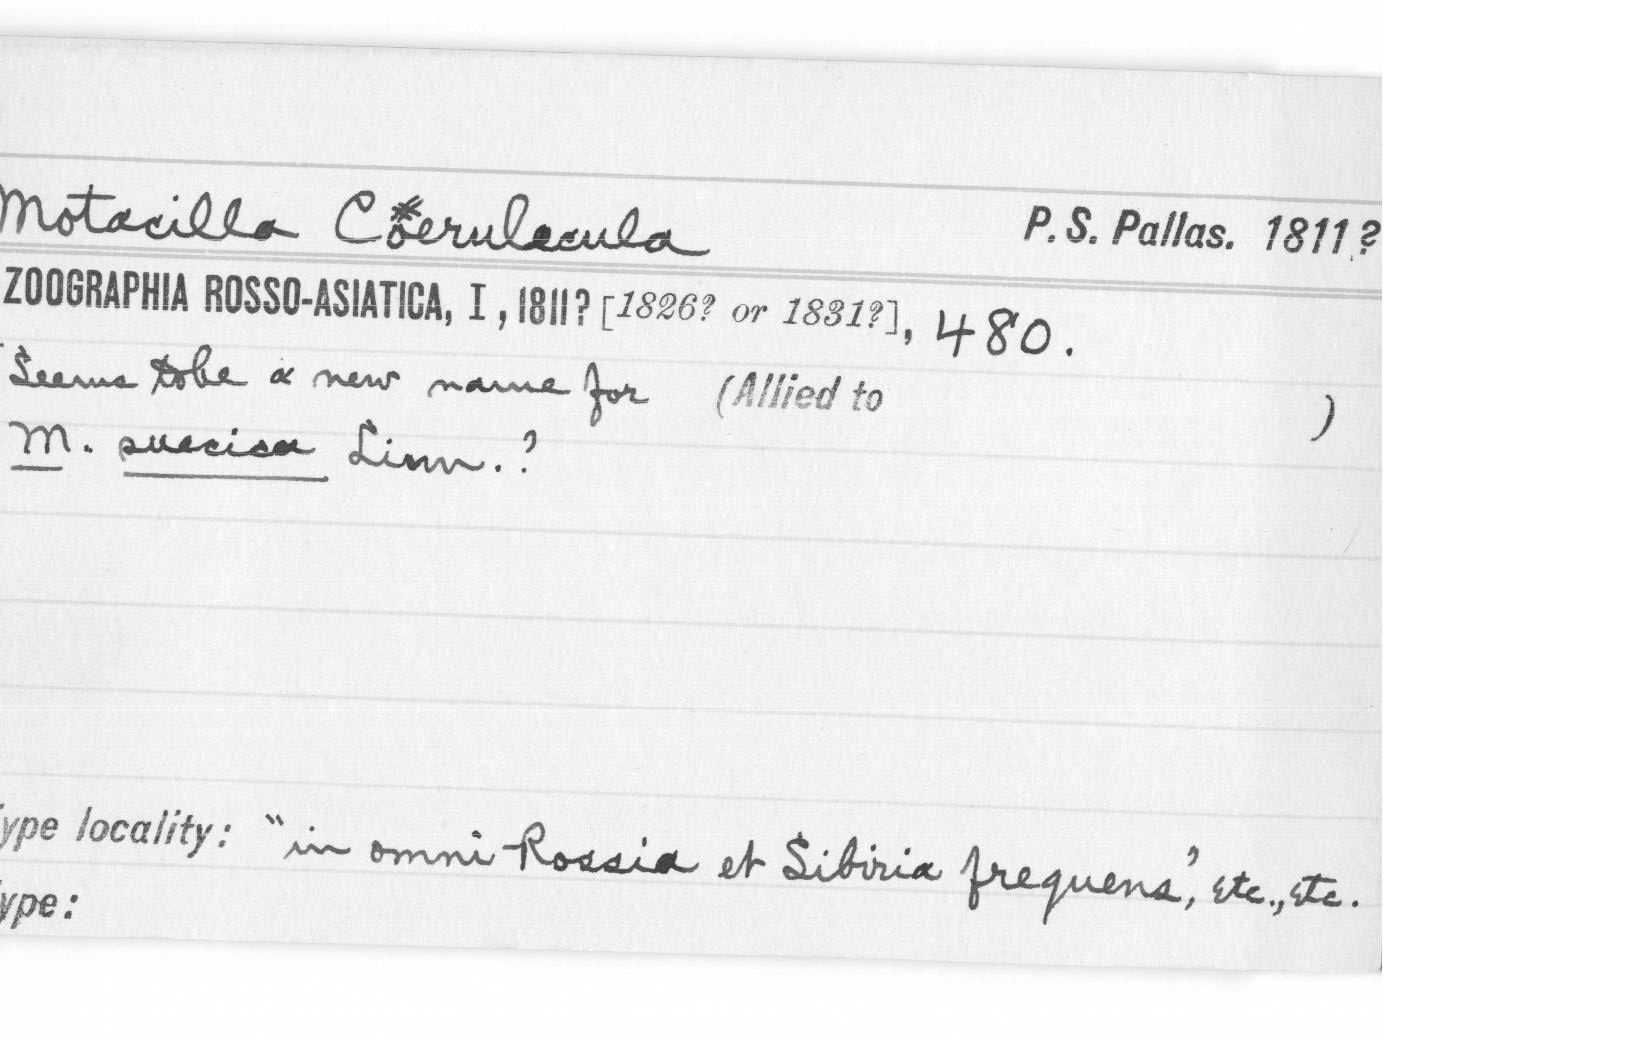 Motacilla Coerulecula P. S. Pallas. 1811?
ZOOGRAPHIA ROSSO-ASIATICA, I, 1811? [1826? or 1831?], 480.
Seems to be a new name for (Allied to )
M. suecica Linn.?
Type locality: "in omni Rossia et Sibiria frequens", etc., etc.
Type: